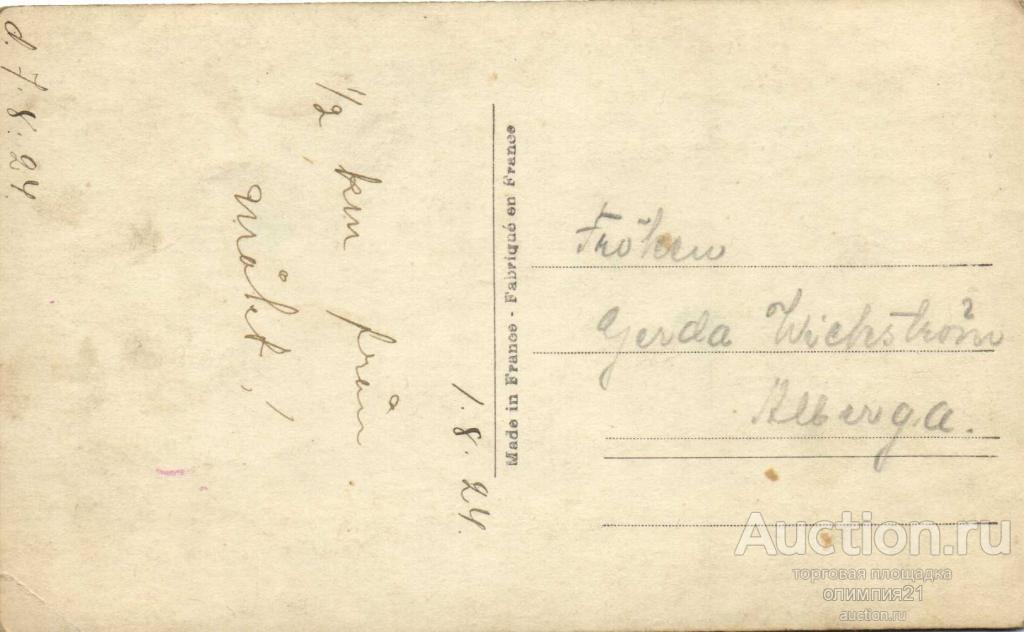 d. 7.8.24.
1.8.24.
1/2 km från
målet!
Made in France - Fabriqué en France
Fröken
Gerda Wickström
Alberga.
Auction.ru
торговая площадка
олимпия21
auction.ru